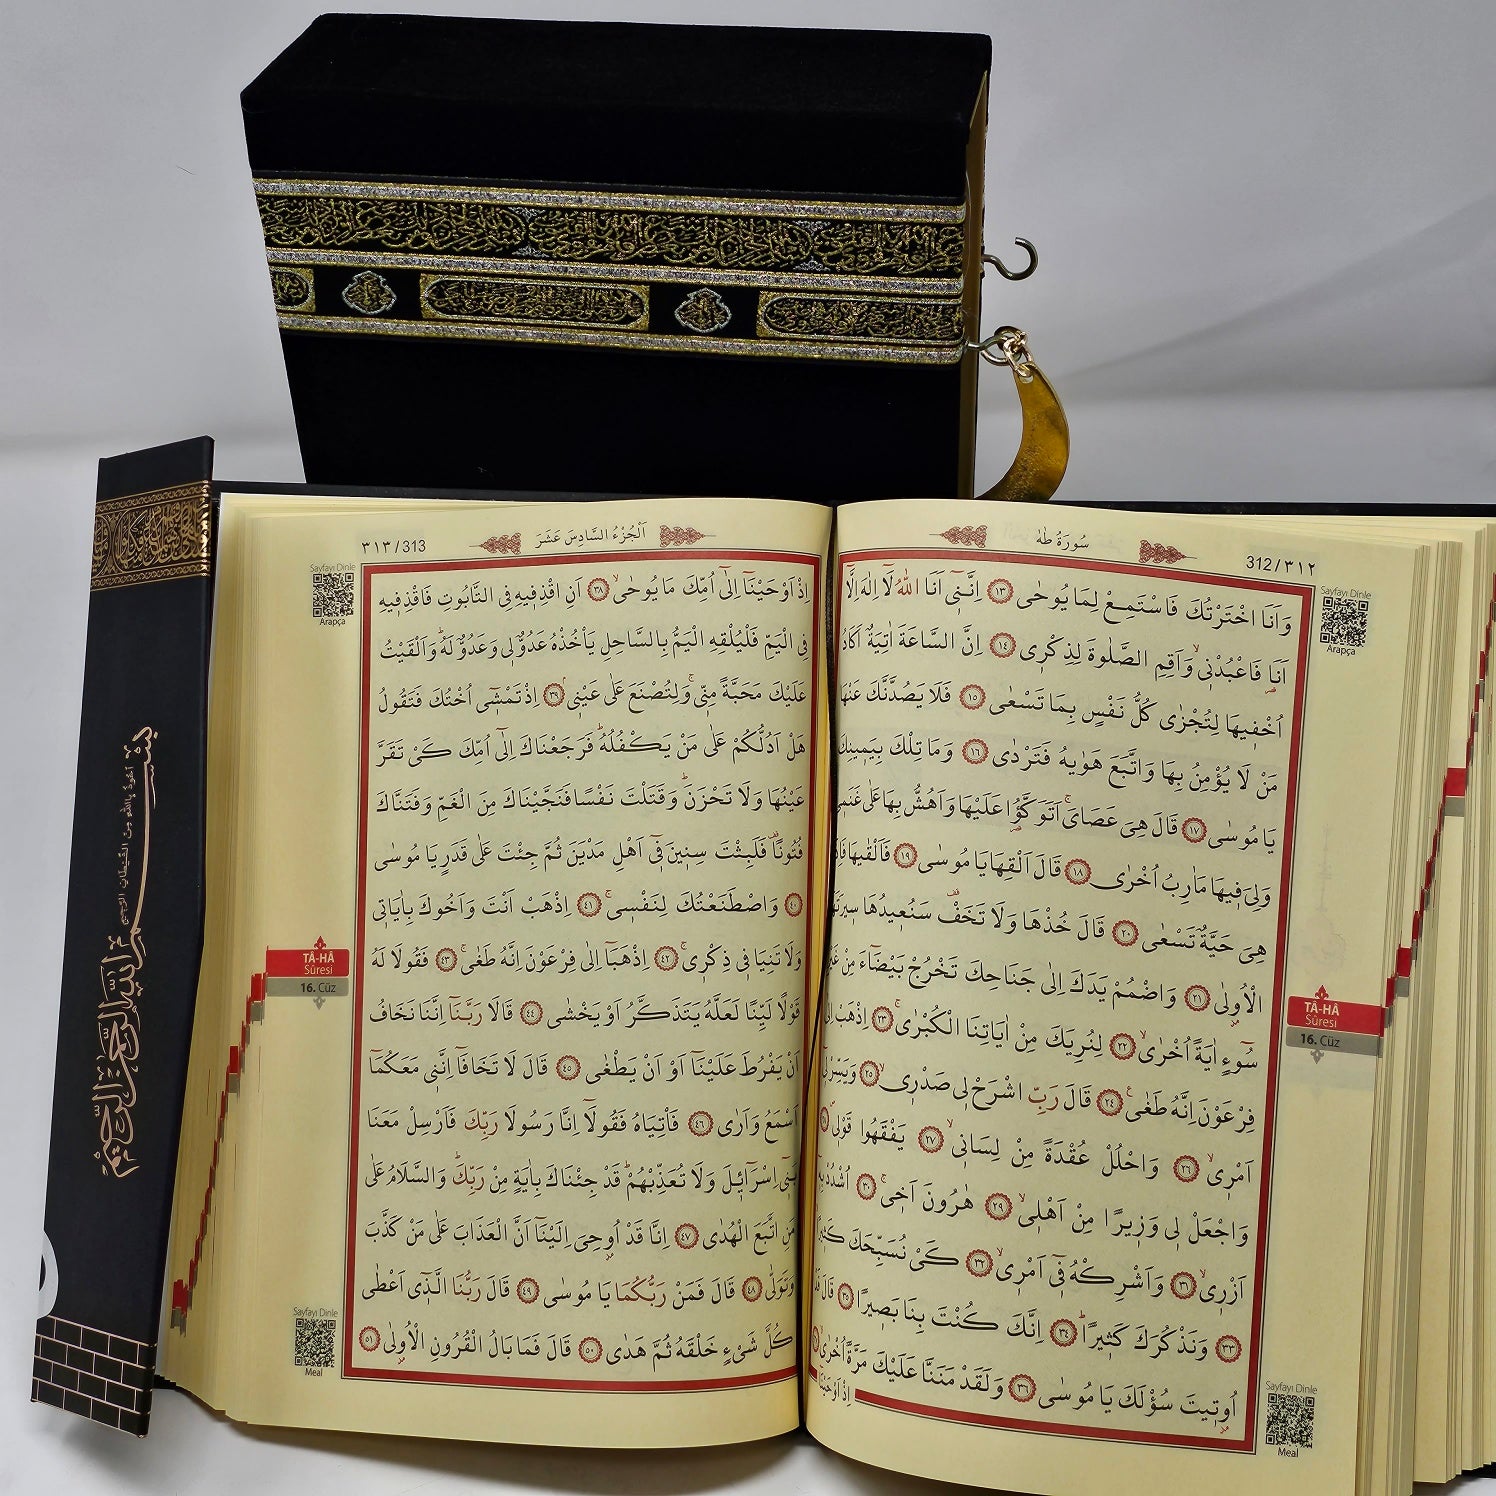 سُورَةُ طٰهٰ
312/٣١٢
Sayfayı Dinle
Arapça
وَاَنَا اخْتَرْتُكَ فَاسْتَمِعْ لِمَا يُوحٰى ﴿١٣﴾ اِنَّنٖٓي اَنَا اللّٰهُ لَٓا اِلٰهَ اِلَّٓا
اَنَا۬ فَاعْبُدْنٖيۙ وَاَقِمِ الصَّلٰوةَ لِذِكْرٖي ﴿١٤﴾ اِنَّ السَّاعَةَ اٰتِيَةٌ اَكَادُ
اُخْفٖيهَا لِتُجْزٰى كُلُّ نَفْسٍ بِمَا تَسْعٰى ﴿١٥﴾ فَلَا يَصُدَّنَّكَ عَنْهَا
مَنْ لَا يُؤْمِنُ بِهَا وَاتَّبَعَ هَوٰيهُ فَتَرْدٰى ﴿١٦﴾ وَمَا تِلْكَ بِيَمٖينِكَ
يَا مُوسٰى ﴿١٧﴾ قَالَ هِيَ عَصَايَۚ اَتَوَكَّؤُ۬ا عَلَيْهَا وَاَهُشُّ بِهَا عَلٰى غَنَمٖي
وَلِيَ فٖيهَا مَاٰرِبُ اُخْرٰى ﴿١٨﴾ قَالَ اَلْقِهَا يَا مُوسٰى ﴿١٩﴾ فَاَلْقٰيهَا فَاِذَا
هِيَ حَيَّةٌ تَسْعٰى ﴿٢٠﴾ قَالَ خُذْهَا وَلَا تَخَفْ۠ سَنُعٖيدُهَا سٖيرَتَهَا
الْاُو۫لٰى ﴿٢١﴾ وَاضْمُمْ يَدَكَ اِلٰى جَنَاحِكَ تَخْرُجْ بَيْضَٓاءَ مِنْ غَيْرِ
سُٓوءٍ اٰيَةً اُخْرٰىۙ ﴿٢٢﴾ لِنُرِيَكَ مِنْ اٰيَاتِنَا الْكُبْرٰىۚ ﴿٢٣﴾ اِذْهَبْ اِلٰى
فِرْعَوْنَ اِنَّهُ طَغٰىࣖ ﴿٢٤﴾ قَالَ رَبِّ اشْرَحْ لٖي صَدْرٖيۙ ﴿٢٥﴾ وَيَسِّرْ لٖٓي
اَمْرٖيۙ ﴿٢٦﴾ وَاحْلُلْ عُقْدَةً مِنْ لِسَانٖيۙ ﴿٢٧﴾ يَفْقَهُوا قَوْلٖي ﴿٢٨﴾
وَاجْعَلْ لٖي وَزٖيرًا مِنْ اَهْلٖيۙ ﴿٢٩﴾ هٰرُونَ اَخٖيۚ ﴿٣٠﴾ اُشْدُدْ بِهٖٓ
اَزْرٖيۙ ﴿٣١﴾ وَاَشْرِكْهُ فٖٓي اَمْرٖيۙ ﴿٣٢﴾ كَيْ نُسَبِّحَكَ كَثٖيرًا
﴿٣٣﴾ وَنَذْكُرَكَ كَثٖيرًاۜ ﴿٣٤﴾ اِنَّكَ كُنْتَ بِنَا بَصٖيرًا ﴿٣٥﴾ قَالَ قَدْ
اُو۫تٖيتَ سُؤْلَكَ يَا مُوسٰى ﴿٣٦﴾ وَلَقَدْ مَنَنَّا عَلَيْكَ مَرَّةً اُخْرٰىۙ
اِذْ اَوْحَيْنَا
TÂ-HÂ
Sûresi
16. Cüz
Sayfayı Dinle
Meal
اَلْجُزْءُ السَّادِسَ عَشَرَ
٣١٣/313
Sayfayı Dinle
Arapça
اِذْ اَوْحَيْنَٓا اِلٰٓى اُمِّكَ مَا يُوحٰىۙ ﴿٣٨﴾ اَنِ اقْذِفٖيهِ فِي التَّابُوتِ فَاقْذِفٖيهِ
فِي الْيَمِّ فَلْيُلْقِهِ الْيَمُّ بِالسَّاحِلِ يَأْخُذْهُ عَدُوٌّ لٖي وَعَدُوٌّ لَهُۜ وَاَلْقَيْتُ
عَلَيْكَ مَحَبَّةً مِنّٖيۚ وَلِتُصْنَعَ عَلٰى عَيْنٖيۢ ﴿٣٩﴾ اِذْ تَمْشٖٓي اُخْتُكَ فَتَقُولُ
هَلْ اَدُلُّكُمْ عَلٰى مَنْ يَكْفُلُهُۜ فَرَجَعْنَاكَ اِلٰٓى اُمِّكَ كَيْ تَقَرَّ
عَيْنُهَا وَلَا تَحْزَنَۜ وَقَتَلْتَ نَفْسًا فَنَجَّيْنَاكَ مِنَ الْغَمِّ وَفَتَنَّاكَ
فُتُونًا۠ فَلَبِثْتَ سِنٖينَ فٖٓي اَهْلِ مَدْيَنَ ثُمَّ جِئْتَ عَلٰى قَدَرٍ يَا مُوسٰى
﴿٤٠﴾ وَاصْطَنَعْتُكَ لِنَفْسٖيۚ ﴿٤١﴾ اِذْهَبْ اَنْتَ وَاَخُوكَ بِاٰيَاتٖي
وَلَا تَنِيَا فٖي ذِكْرٖيۚ ﴿٤٢﴾ اِذْهَبَٓا اِلٰى فِرْعَوْنَ اِنَّهُ طَغٰىۚ ﴿٤٣﴾ فَقُولَا لَهُ
قَوْلًا لَيِّنًا لَعَلَّهُ يَتَذَكَّرُ اَوْ يَخْشٰى ﴿٤٤﴾ قَالَا رَبَّنَٓا اِنَّنَا نَخَافُ
اَنْ يَفْرُطَ عَلَيْنَٓا اَوْ اَنْ يَطْغٰى ﴿٤٥﴾ قَالَ لَا تَخَافَٓا اِنَّنٖي مَعَكُمَٓا
اَسْمَعُ وَاَرٰى ﴿٤٦﴾ فَأْتِيَاهُ فَقُولَٓا اِنَّا رَسُولَا رَبِّكَ فَاَرْسِلْ مَعَنَا
بَنٖٓي اِسْرَٓائٖلَ وَلَا تُعَذِّبْهُمْۜ قَدْ جِئْنَاكَ بِاٰيَةٍ مِنْ رَبِّكَۜ وَالسَّلَامُ عَلٰى
مَنِ اتَّبَعَ الْهُدٰى ﴿٤٧﴾ اِنَّا قَدْ اُو۫حِيَ اِلَيْنَٓا اَنَّ الْعَذَابَ عَلٰى مَنْ كَذَّبَ
وَتَوَلّٰى ﴿٤٨﴾ قَالَ فَمَنْ رَبُّكُمَا يَا مُوسٰى ﴿٤٩﴾ قَالَ رَبُّنَا الَّذٖٓي اَعْطٰى
كُلَّ شَيْءٍ خَلْقَهُ ثُمَّ هَدٰى ﴿٥٠﴾ قَالَ فَمَا بَالُ الْقُرُونِ الْاُو۫لٰى ﴿٥١﴾
TÂ-HÂ
Sûresi
16. Cüz
Sayfayı Dinle
Meal
اعوذ بالله من الشيطان الرجيم
بسم الله الرحمن الرحيم